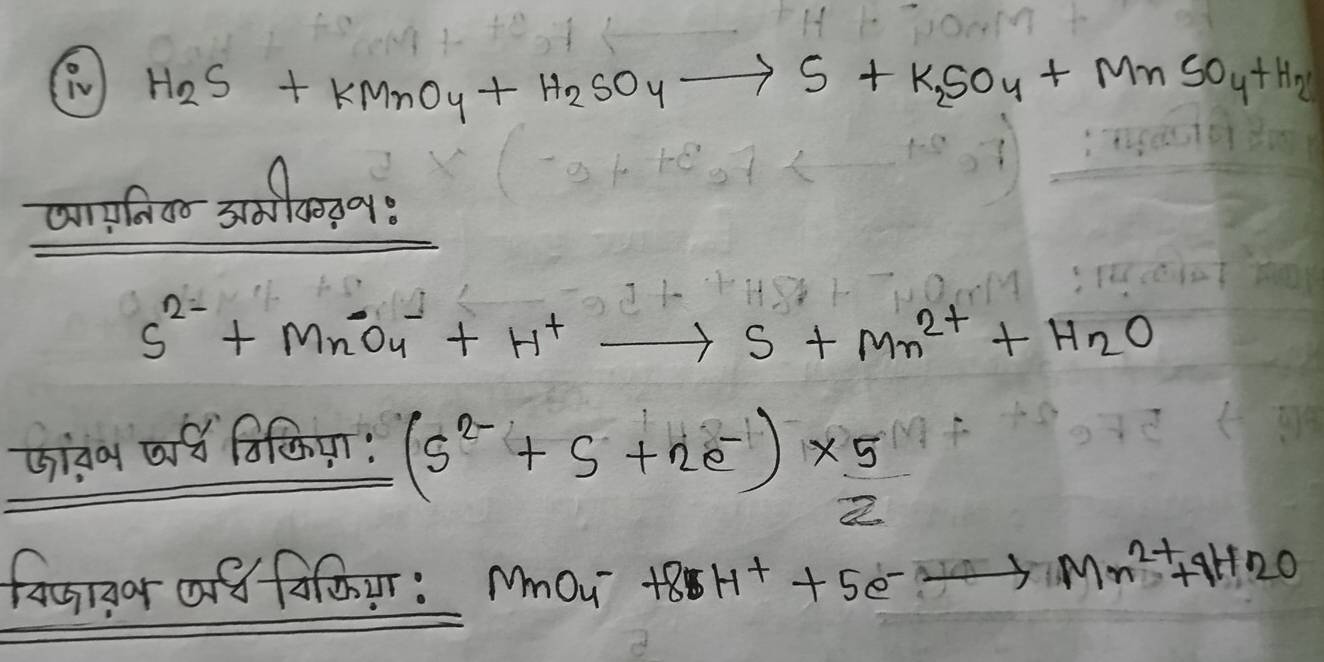 (iv) H2S + KMnO4 + H2SO4 ⟶ S + K2SO4 + MnSO4 + H2
আয়নিক সমীকরণ:
S²⁻ + MnO4⁻ + H⁺ ⟶ S + Mn²⁺ + H2O
জারণ অর্ধ বিক্রিয়া: (S²⁻ + S + 2e⁻) × 5/2
বিজারণ অর্ধ বিক্রিয়া: MnO4⁻ + 8H⁺ + 5e⁻ ⟶ Mn²⁺ + 4H2O